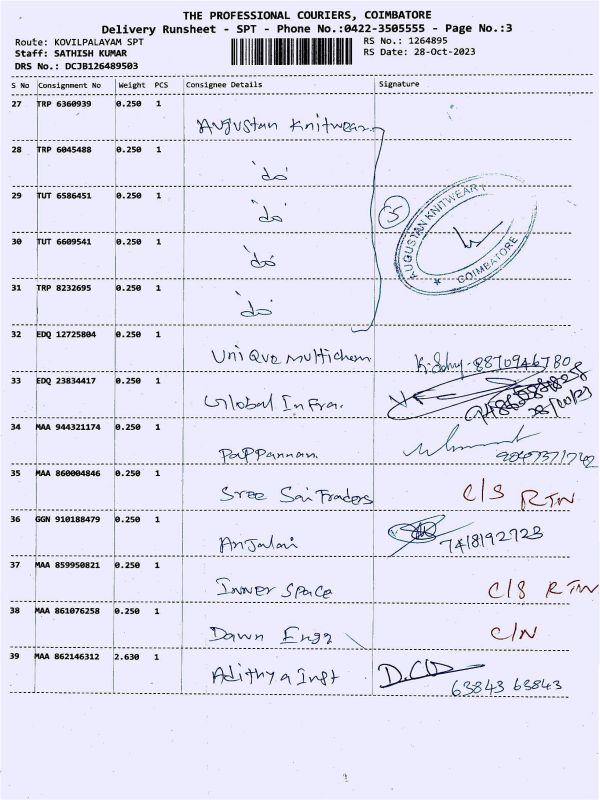 THE PROFESSIONAL COURIERS, COIMBATORE
Delivery Runsheet - SPT - Phone No.:0422-3505555 - Page No.:3
Route: KOVILPALAYAM SPT
Staff: SATHISH KUMAR
DRS No.: DCJB126489503
RS No.: 1264895
RS Date: 28-Oct-2023
S No Consignment No Weight PCS Consignee Details Signature
27 TRP 6360939 0.250 1 Augustan Knitwear
28 TRP 6045488 0.250 1 'do'
29 TUT 6586451 0.250 1 'do' 5
30 TUT 6609541 0.250 1 'do'
31 TRP 8232695 0.250 1 'do'
AUGUSTAN KNITWEAR
COIMBATORE
32 EDQ 12725804 0.250 1 Unique Multichem 8870946780
33 EDQ 23834417 0.250 1 Global Infra. 28/10/23
34 MAA 944321174 0.250 1 Pappannan
35 MAA 860004846 0.250 1 Sree Sai Traders C/S RTN
36 GGN 910188479 0.250 1 Anjalai 7418192723
37 MAA 859950821 0.250 1 Inner Space C/S RTN
38 MAA 861076258 0.250 1 Dawn Engg C/N
39 MAA 862146312 2.630 1 Adithya Inst 63843 63843